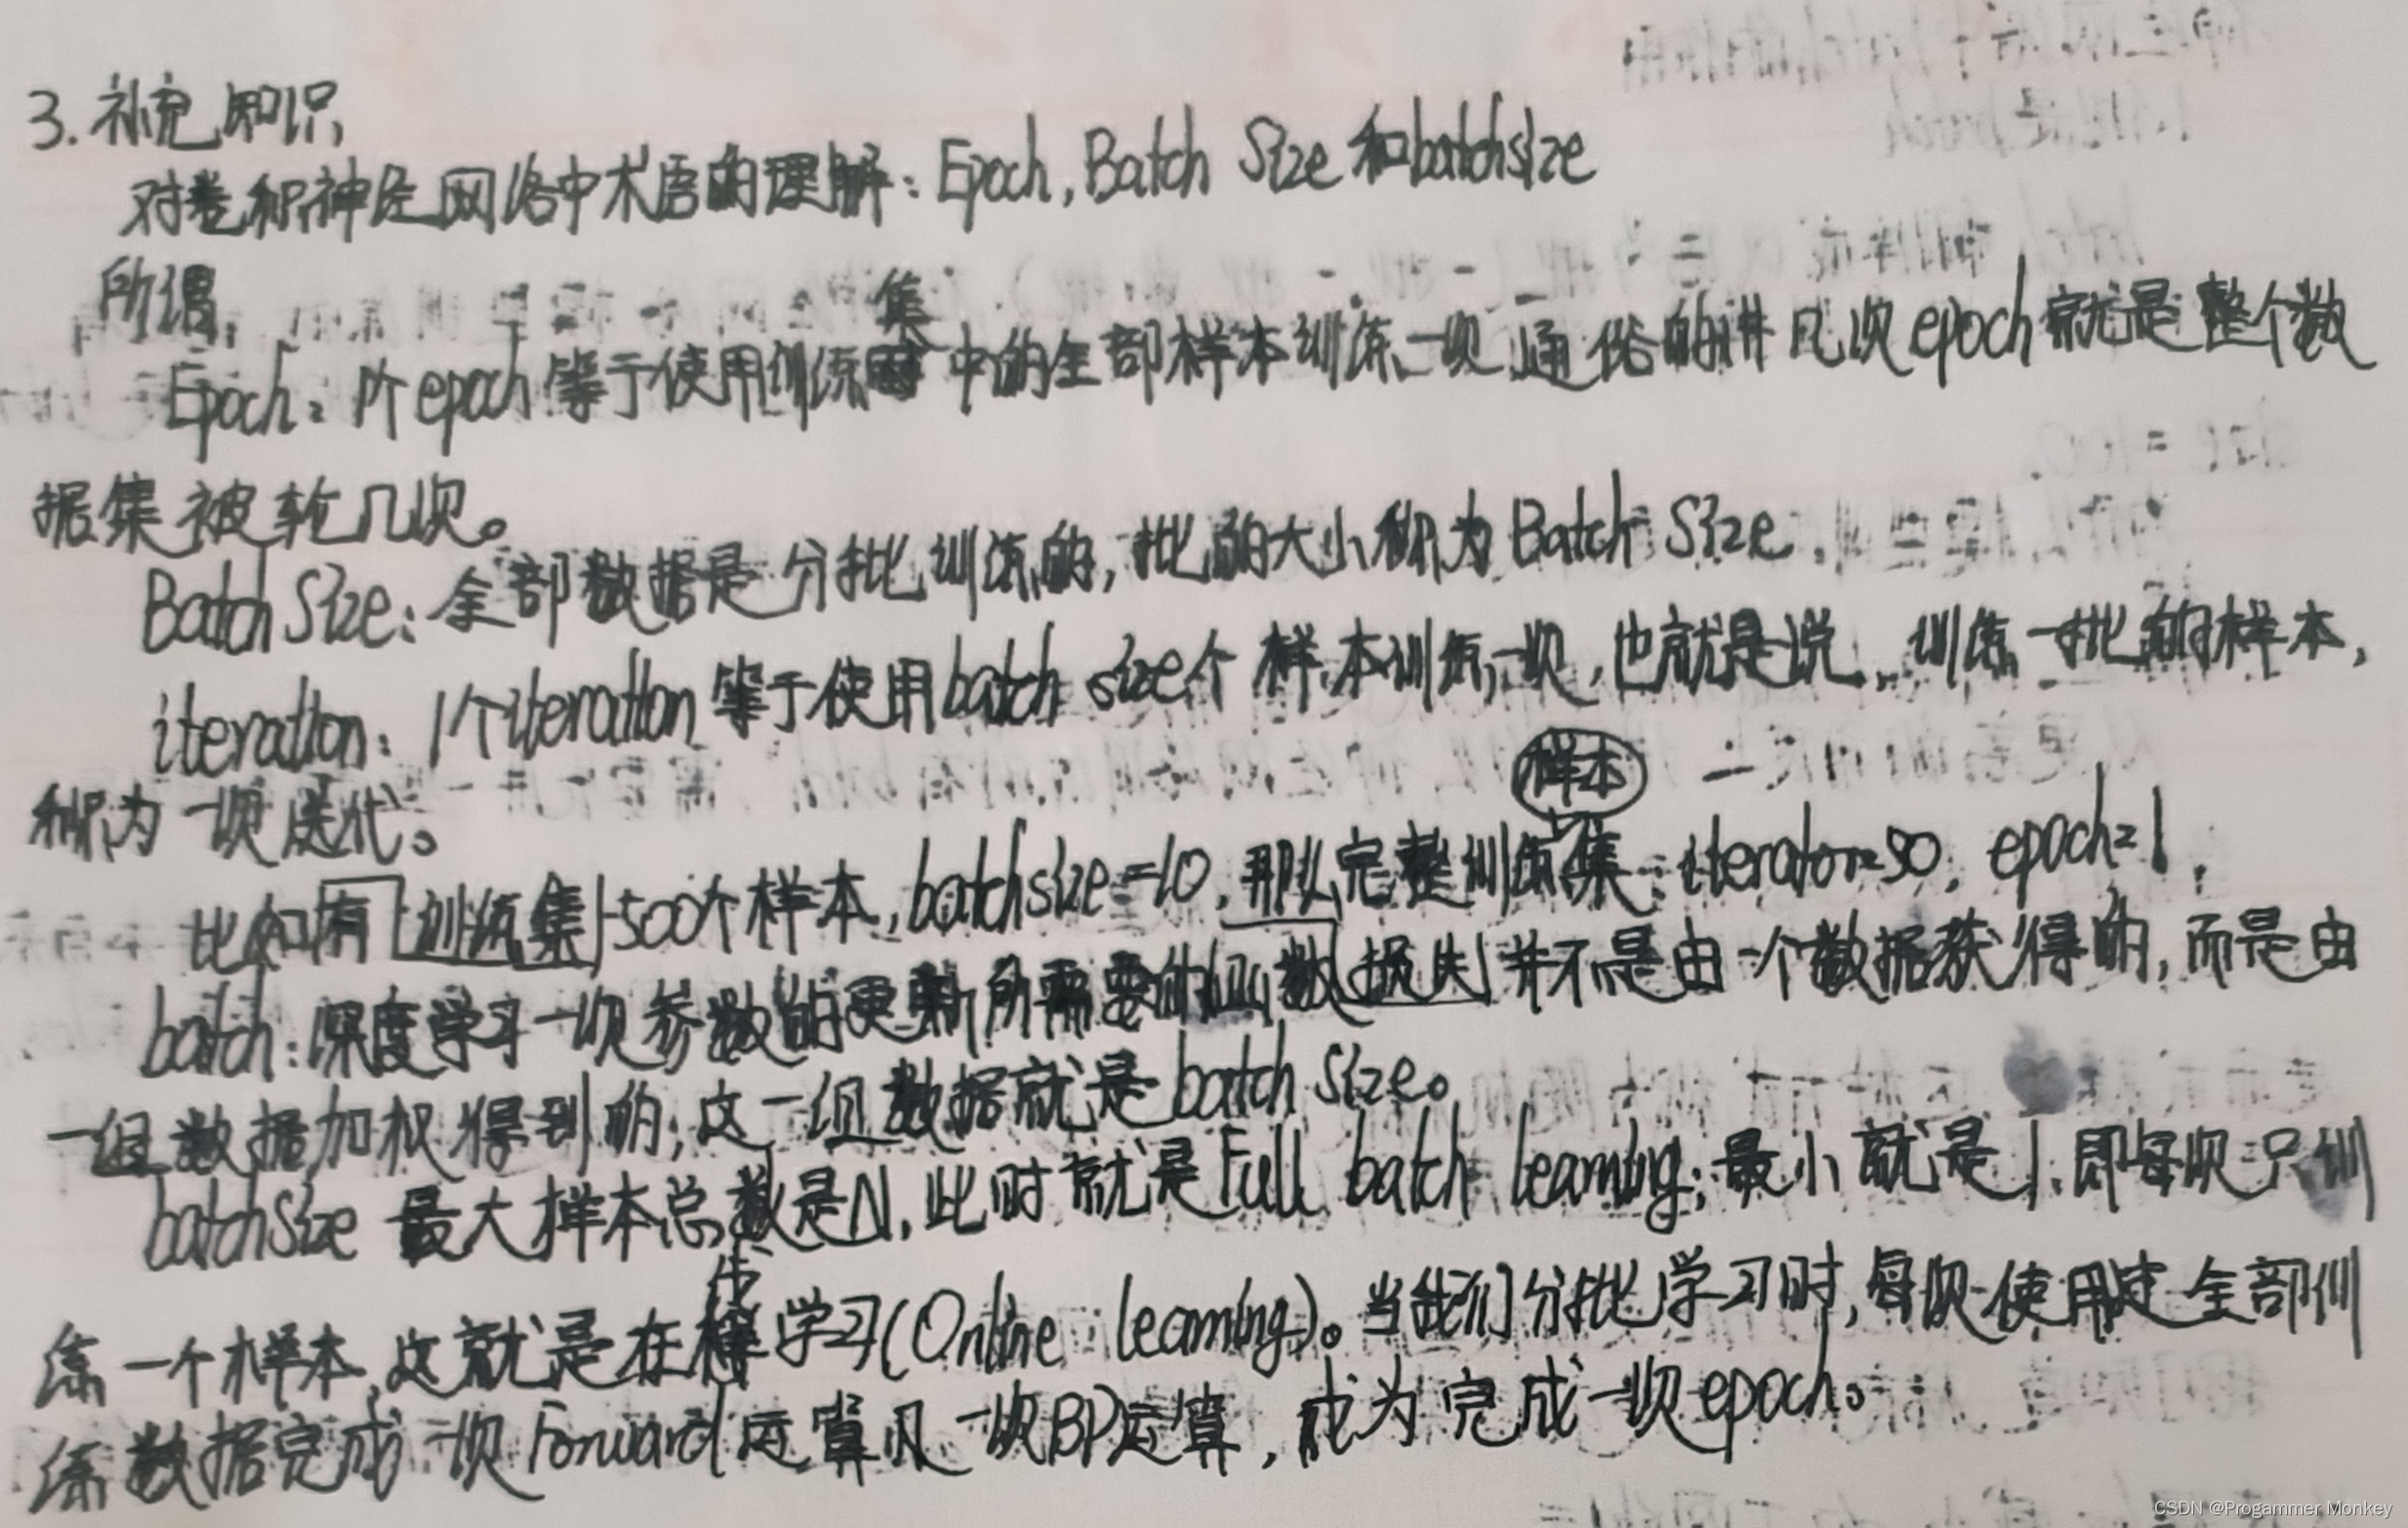 3. 补充知识
对卷积神经网络中术语的理解：Epoch, Batch Size 和 batchsize
所谓，
集
Epoch：1个epoch等于使用训练 中的全部样本训练一次 通俗的讲 几次epoch就是整个数
据集被轮几次。
Batch Size：全部数据是分批训练的，批的大小称为 Batch Size.
iteration：1个iteration 等于使用 batch size个 样本训练一次，也就是说，训练一批的样本，
称为一次迭代。
样本
比如有 训练集 500个样本，batchsize=10，那么完整训练集：iteration=50，epoch=1.
batch：深度学习一次参数的更新所需要的 数 损失 并不是由一个数据获得的，而是由
一组数据加权得到的；这一组数据就是 batch size。
batchsize 最大样本总数是N，此时就是Full batch learning；最小就是1，即每次只训
练一个样本，这就是在 学习(Online learning)。当我们分批学习时，每次使用 全部训
练数据完成一次Forward运算 一次BP运算，成为完成一次epoch。
CSDN @Progammer Monkey